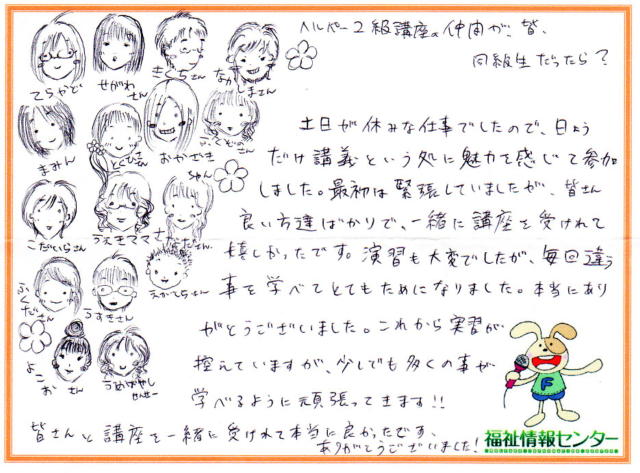 ヘルパー2級講座の仲間が、皆、
同級生だったら？
てらかど
せがわさん
きくちさん
なかしまさん
まみん
とくひさん
おかざきちゃん
ふくぞのさん
こだいらさん
うえきママ
ふくださん
うすきさん
えがしらさん
よこおさん
うめばやしせんせー
土日が休みな仕事でしたので、日よう
だけ講義という処に魅力を感じて参加
しました。最初は緊張していましたが、皆さん
良い方達ばかりで、一緒に講座を受けれて
嬉しかったです。演習も大変でしたが、毎回違う
事を学べてとてもためになりました。本当にあり
がとうございました。これから実習が
控えていますが、少しでも多くの事が
学べるように頑張ってきます!!
皆さんと講座を一緒に受けれて本当に良かったです。
ありがとうございました!
F
福祉情報センター